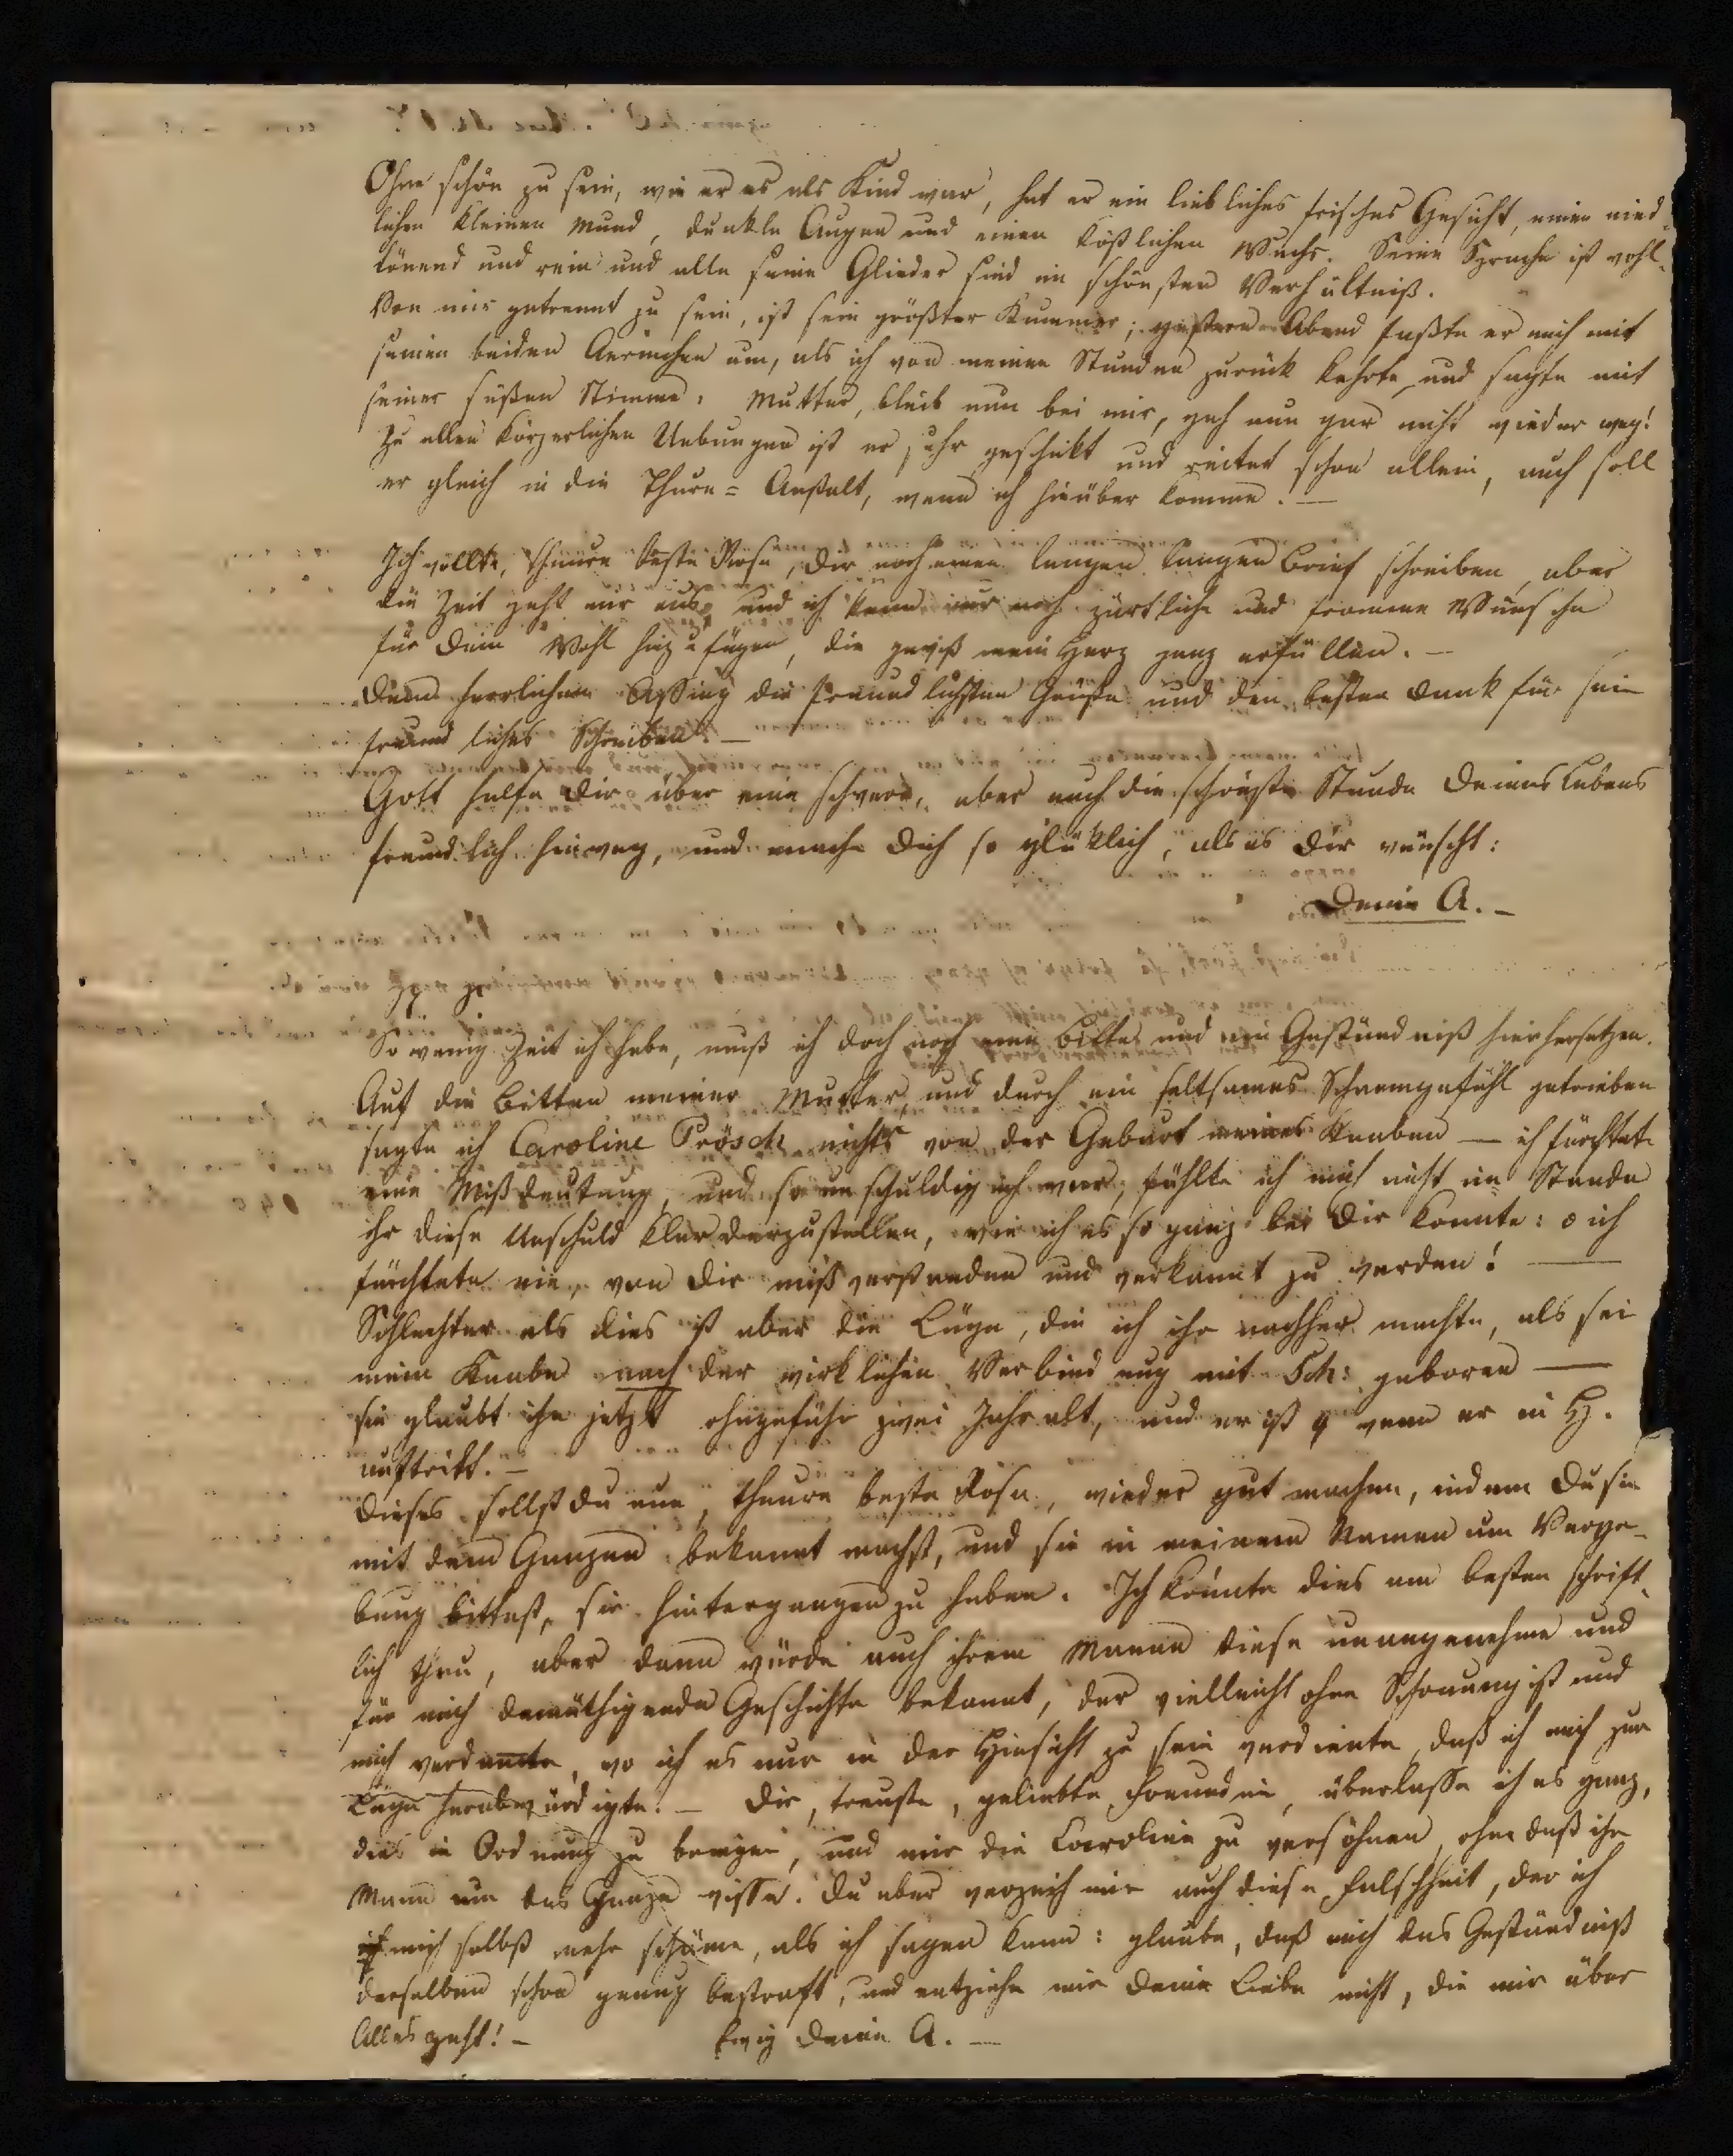 Ohne schön zu sein, wie er es als Kind war, hat er ein liebliches frisches Gesicht, einen nied-
lichen kleinen Mund, dunkle Augen und einen köstlichen Wuchs. Seine Sprache ist wohl-
tönend und rein und alle seine Glieder sind im schönsten Verhältniß.
Von mir getrennt zu sein, ist sein größter Kummer; gestern Abend faßte er mich mit
seinen beiden Aermchen um, als ich von meinen Stunden zurück kehrte und sagte mit
seiner süßen Stimme: Mutter, bleib nun bei mir, geh nun gar nicht wieder weg!
Zu allen körperlichen Uebungen ist er sehr geschickt und reitet schon allein, auch soll
er gleich in die Thurn-Anstalt, wenn ich hinüber komme. —
Ich wollte, theure beste Rosa, Dir noch einen langen langen Brief schreiben, aber
die Zeit geht mir aus, und ich kann nur noch zärtliche und fromme Wünsche
für Dein Wohl hinzufügen, die gewiß mein Herz ganz erfüllen. —
Dem herrlichen Assing die freundlichsten Grüße und den besten Dank für sein
freundliches Schreiben. —
Gott helfe Dir über eine schwere, aber auch die schönste Stunde Deines Lebens
freundlich hinweg, und mache Dich so glücklich, als es Dir wünscht:
Deine A. —
So wenig Zeit ich habe, muß ich doch noch eine Bitte und ein Geständniß hierhersetzen.
Auf die Bitten meiner Mutter, und durch ein seltsames Schaamgefühl getrieben
sagte ich Caroline Prösch nichts von der Geburt meines Knaben — ich fürchtete
eine Mißdeutung, und so unschuldig ich war, fühlte ich mich nicht im Stande
ihr diese Unschuld klar darzustellen, wie ich es so ganz bei Dir konnte: o ich
fürchtete nie, von Dir mißverstanden und verkannt zu werden! —
Schlechter als dies ist aber die Lüge, die ich ihr nachher machte, als sei
mein Knabe nach der wirklichen Verbindung mit Sch: geboren —
sie glaubt ihn jetzt ohngefähr zwei Jahr alt, und er ist 4 wenn er in H.
auftritt. —
Dieses sollst Du nun, theure beste Rosa, wieder gut machen, indem Du sie
mit dem Ganzen bekannt machst, und sie in meinem Namen um Verge-
bung bittest, sie hintergangen zu haben. Ich könnte dies am besten schrift-
lich thun, aber dann würde auch ihrem Manne diese unangenehme und
für mich demüthigende Geschichte bekannt, der vielleicht ohne Schonung ist und
mich verdammte, wo ich es nur in der Hinsicht zu sein verdiente, daß ich mich zur
Lüge herabwürdigte. — Dir, treuste, geliebte Freundin, überlasse ich es ganz,
dies in Ordnung zu bringen, und mir die Caroline zu versöhnen, ohne daß ihr
Mann um das Ganze wisse. Du aber verzeih mir auch diese Falschheit, der ich
mich selbst mehr schäme, als ich sagen kann: glaube, daß mich das Geständniß
derselben schon genug bestraft, und entziehe mir Deine Liebe nicht, die mir über
Alles geht! — Ewig Deine A. —